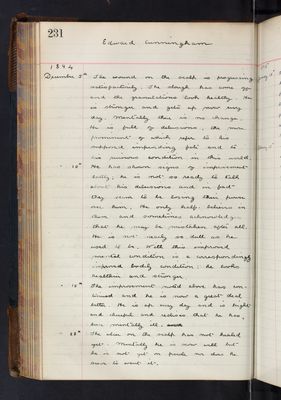 231
Edward Cunningham
1894
December 5th The wound on the scalp is progressing
satisfactorily. The slough has come off
and the granulations look healthy. He
is stronger and gets up now every
day. Mentally there is no change.
He is full of delusions, the most
prominent of which refer to his
supposed impending fate and to
his previous condition in this world.
" 10th He has shown signs of improvement
lately, he is not so ready to talk
about his delusions and in fact
they seem to be losing their power
over him. He only half believes in
them and sometimes acknowledges
that he may be mistaken after all.
He is not nearly so dull as he
used to be. With this improved
mental condition is a correspondingly
improved bodily condition; he looks
healthier and stronger
The improvement noted above has con-
tinued and he is now a great deal
better. He is up every day and is bright
and cheerful and realises that he has
been mentally ill.
The ulcer on the scalp has not healed
yet. Mentally he is now well but
he is not yet on parole nor does he
seem to want it.